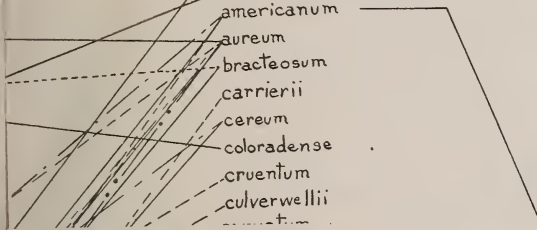 americanum
aureum
bracteosum
carrierii
cereum
coloradense
cruentum
culverwellii